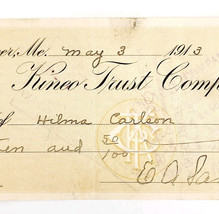 ver, Me. May 3 1913
Kineo Trust Comp
of Hilma Carlson
en and 50/100
E.A. Sa